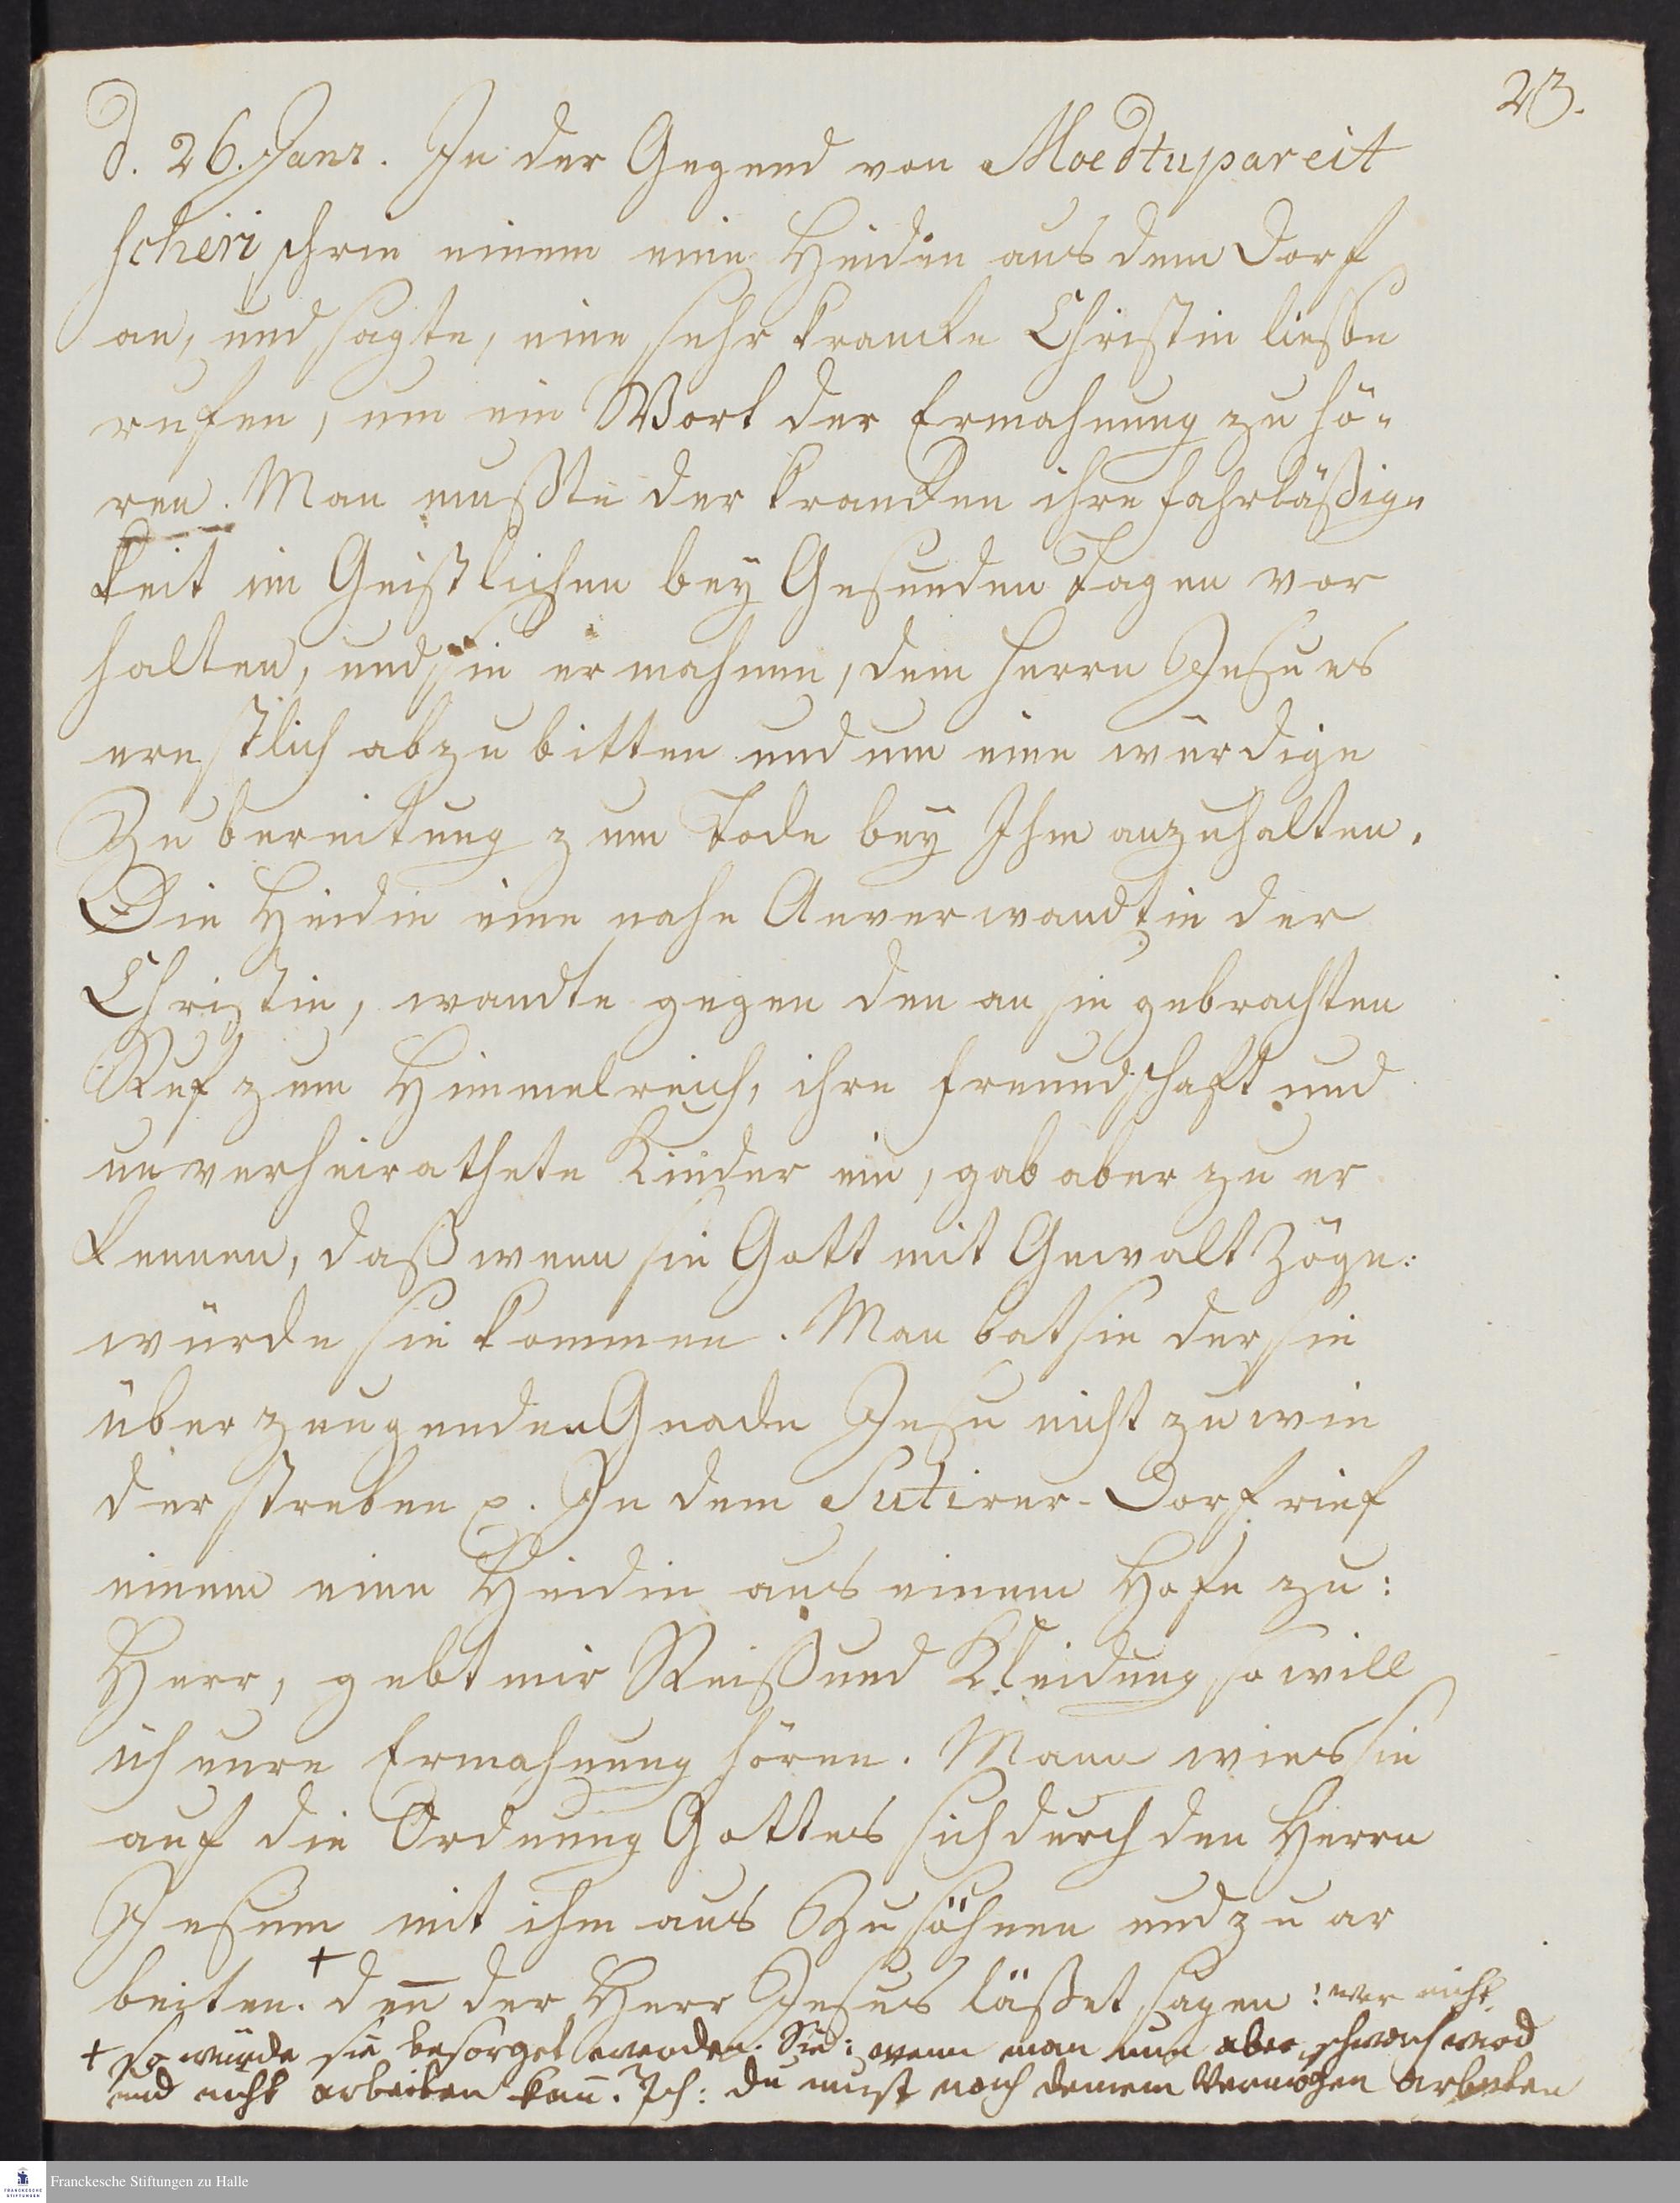 23.
d. 26. Janr. In der Gegend von Moedtupareit
scheri schrie einem eine Heidin aus dem Dorf
an, und sagte, eine sehr krancke Christin liesse
rufen, um ein Wort der Ermahnung zu hö-
ren. Man mußte der krancken ihre fahrläßig-
keit im Geistlichen bey Gesunden Tagen vor
halten, und sie ermahnen, dem Herrn Jesu es
ernstlich abzubitten und um eine würdige
Zubereitung zum Tode bey Ihm anzuhalten.
Die Heidin eine nahe Anverwandtin der
Christin, wandte gegen den an sie gebrachten
Ruf zum Himmelreich, ihre freundschaft und
unverheirathete Kinder ein, gab aber zu er
kennen, daß wenn sie Gott mit Gewalt zöge:
würde sie kommen. Man bat sie der sie
überzeugenden Gnade Jesu nicht zu wie
der streben p. In dem Sutirer-Dorf rief
einem eine Heidin aus einem Hofe zu:
Herr, gebt mir Reiß und Kleidung so will
ich eure Ermahnung hören. Mann wies sie
auf die Ordnung Gottes sich durch den Herrn
Jesum mit ihm aus Zusöhnen und zu ar
beiten. + den̄ der Herr Jesus läßet sagen: wer nicht
+ so würde sie besorget werden. Sie: wenn man nun aber schwach wird
und nicht arbeiten kan̄. Ich: du must nach deinem Vermögen arbeiten
Franckesche Stiftungen zu Halle
FRANCKESCHE
STIFTUNGEN